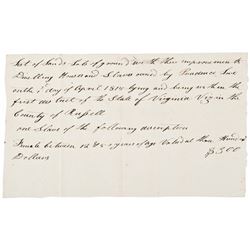 List of Lands Lots of ground with their improvements &
Dwelling Houses and Slaves owned by
on the 1 day of April 1815 lying and being within the
first District of the State of Virginia Viz in the
County of Russell
one Slave of the following description
Female between 12 & 50 years of age Valued at three Hundred
Dollars $ 300